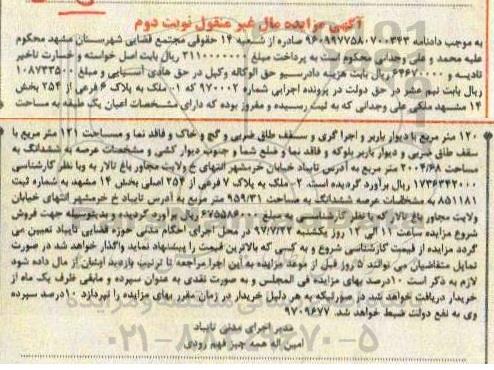 آگهی مزایده مال غیر منقول نوبت دوم
به موجب دادنامه ۹۶۰۹۹۷۷۵۸۰۷۰۰۳۴۳ صادره از شعبه ۱۴ حقوقی مجتمع قضایی شهرستان مشهد محکوم
علیه محمد و علی وجدانی محکوم است به پرداخت مبلغ ۳۱۱۰۰۰۰۰۰۰ ریال بابت اصل خواسته و خسارت تاخیر
تادیه و ۶۴۶۷۰۰۰۰ ریال بابت هزینه دادرسی و حق الوکاله وکیل در حق هادی آسیابی و مبلغ ۱۰۸۷۳۳۵۰۰
ریال بابت نیم عشر در حق دولت در پرونده اجرایی شماره ۹۷۰۰۰۲ که ۰۱ ملک به پلاک ۶ فرعی از ۲۵۴ بخش
۱۴ مشهد ملکی علی وجدانی که به ثبت رسیده و مفروز بوده که دارای مشخصات اعیان یک طبقه به مساحت
۱۲۰ متر مربع با دیوار باربر و اجرا گری و سقف طاق ضربی و گچ و خاک و فاقد نما و مساحت ۱۲۱ متر مربع با
سقف طاق ضربی و دیوار باربر بلوکه و فاقد نما و ضلع شما و جنوب دیوار کشی و مشخصات عرصه به ششدانگ به
مساحت ۲۰۰۴/۶۸ متر مربع به آدرس تایباد خیابان خرمشهر انتهای خ ولایت مجاور باغ تالار به وبا نظر کارشناسی
۱۷۳۶۳۴۲۰۰۰ ریال برآورد گردیده است. ۰۲ ملک به پلاک ۷ فرعی از ۲۵۴ اصلی بخش ۱۴ مشهد به شماره ثبت
۸۵۱۱۸۱ به مشخصات عرصه ششدانگ به مساحت ۹۵۹/۳۱ متر مربع به آدرس تایباد خ خرمشهر انتهای خیابان
ولایت مجاور باغ تالار که با نظر کارشناسی به مبلغ ۶۷۵۵۸۶۰۰۰ ریال برآورد گردیده و بدینوسیله جهت فروش
شروع مزایده ساعت ۱۱ الی ۱۲ روز یکشنبه ۹۷/۷/۲۲ در محل اجرای احکام مدنی حوزه قضایی تایباد تعیین می
گردد مزایده از قیمت کارشناسی شروع و به کسی که بالاترین قیمت را پیشنهاد نماید واگذار خواهد شد در صورت
تمایل متقاضیان می توانند ۵ روز قبل از موعد مزایده به این اجرا مراجعه تا ترتیب بازدید اوشان از مال داده شود
لازم به ذکر است ۱۰درصد بهای مزایده فی المجلس و به صورت نقدی به عنوان سپرده و مابقی ظرف یک ماه از
خریدار دریافت خواهد شد در صورتیکه به هر دلیل خریدار در زمان مقرر بهای مزایده را نپردازد ۱۰درصد سپرده
وی به نفع دولت ضبط خواهد شد. ۹۷۰۹۶۷۷
مدیر اجرای مدنی تایباد
امین اله همه چیز فهم رودی